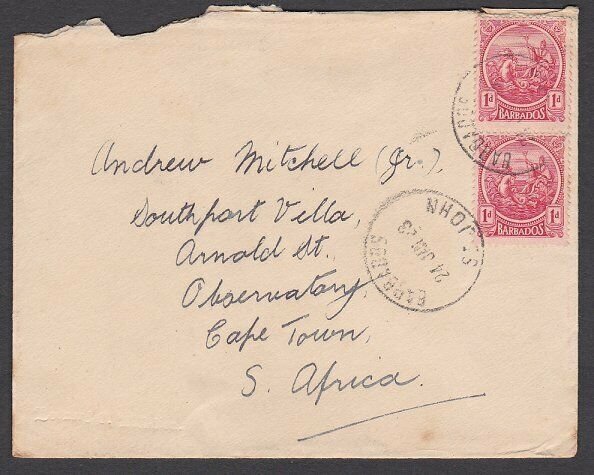 1d 1d
BARBADOS
BARBADOS
1d 1d
BARBADOS
Andrew Mitchell (Jr.),
Southport Villa,
Arnold St.
Observatory,
Cape Town,
S. Africa.
ST. JOHN
BARBADOS